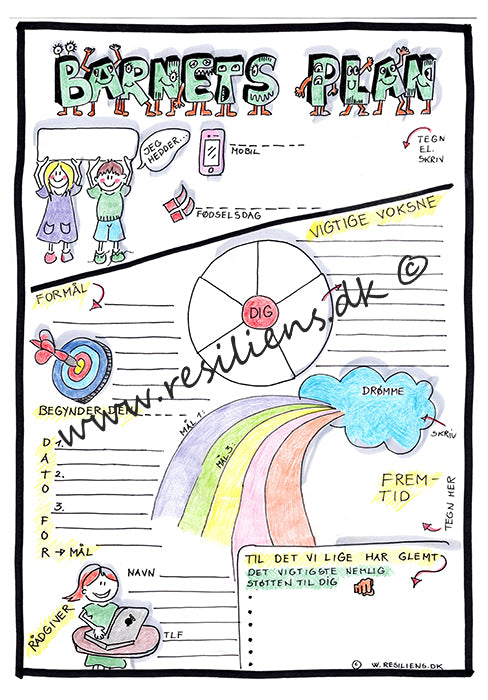 BARNETS PLAN
JEG
HEDDER...
MOBIL
TEGN
EL.
SKRIV
FØDSELSDAG
VIGTIGE VOKSNE
FORMÅL
DIG
www.resiliens.dk ©
BEGYNDER DEN
DRØMME
SKRIV
MÅL 1:
MÅL 3:
DATO FOR → MÅL
1.
2.
3.
FREM-
TID
TEGN HER
TIL DET VI LIGE HAR GLEMT
DET VIGTIGSTE NEMLIG
STØTTEN TIL DIG
RÅDGIVER
NAVN
TLF
© W.RESILIENS.DK